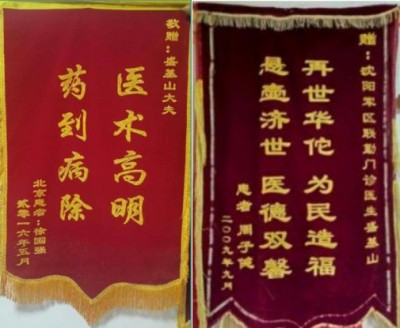 敬赠：盛基山大夫
医术高明
药到病除
北京患者：徐国强
贰零一六年五月
赠：沈阳军区联勤门诊医生盛基山
再世华佗 为民造福
悬壶济世 医德双馨
患者 周子健
二〇〇九年九月